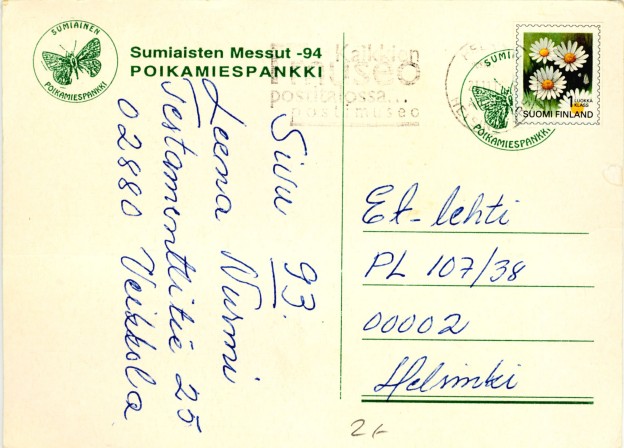 SUMIAINEN
POIKAMIESPANKKI
Sumiaisten Messut -94
POIKAMIESPANKKI
Kaikkien
museo
postitalossa...
postimuseo
SUMIAINEN
POIKAMIESPANKKI
1 LUOKKA
KLASS
SUOMI FINLAND
Sivu 93.
Leena Nurmi
Testamenttitie 25
02880 Veikkola
Et-lehti
PL 107/38
00002
Helsinki
2,-